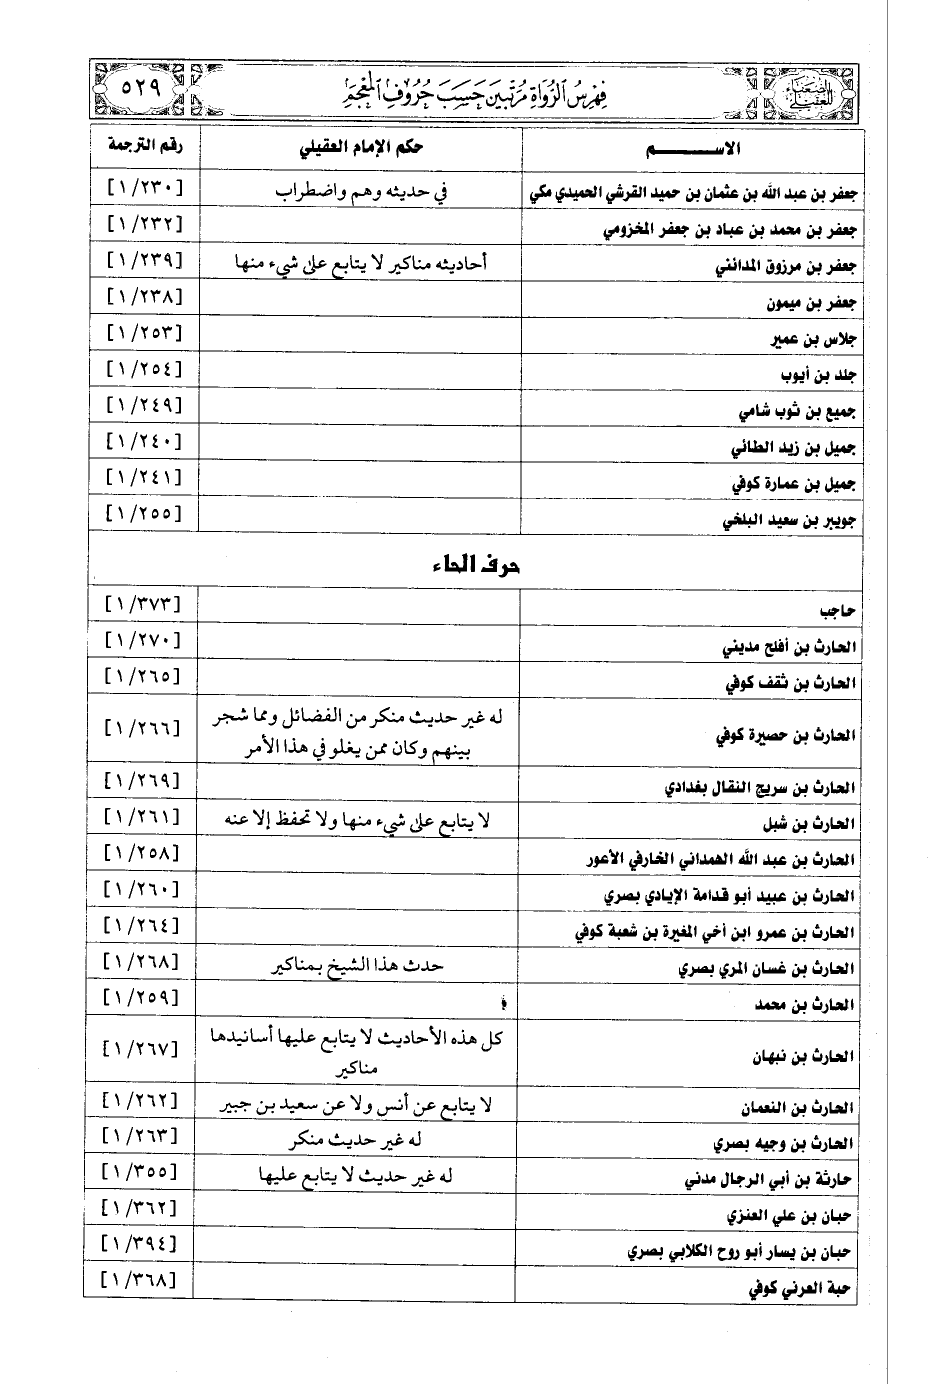 الضعفاء للعقيلي فهرس الرواة مرتبين حسب حروف المعجم ٥٢٩
الاســـــــم حكم الإمام العقيلي رقم الترجمة
جعفر بن عبد الله بن عثمان بن حميد القرشي الحميدي مكي في حديثه وهم واضطراب [١/٢٣٠]
جعفر بن محمد بن عباد بن جعفر المخزومي [١/٢٣٢]
جعفر بن مرزوق المدائني أحاديثه مناكير لا يتابع على شيء منها [١/٢٣٩]
جعفر بن ميمون [١/٢٣٨]
جلاس بن عمير [١/٢٥٣]
جلد بن أيوب [١/٢٥٤]
جميع بن ثوب شامي [١/٢٤٩]
جميل بن زيد الطائي [١/٢٤٠]
جميل بن عمارة كوفي [١/٢٤١]
جويبر بن سعيد البلخي [١/٢٥٥]
حرف الحاء
حاجب [١/٣٧٣]
الحارث بن أفلح مديني [١/٢٧٠]
الحارث بن ثقف كوفي [١/٢٦٥]
الحارث بن حصيرة كوفي له غير حديث منكر من الفضائل ومما شجر [١/٢٦٦]
بينهم وكان ممن يغلو في هذا الأمر
الحارث بن سريج النقال بغدادي [١/٢٦٩]
الحارث بن شبل لا يتابع على شيء منها ولا تحفظ إلا عنه [١/٢٦١]
الحارث بن عبد الله الهمداني الخارفي الأعور [١/٢٥٨]
الحارث بن عبيد أبو قدامة الإيادي بصري [١/٢٦٠]
الحارث بن عمرو ابن أخي المغيرة بن شعبة كوفي [١/٢٦٤]
الحارث بن غسان المري بصري حدث هذا الشيخ بمناكير [١/٢٦٨]
الحارث بن محمد [١/٢٥٩]
الحارث بن نبهان كل هذه الأحاديث لا يتابع عليها أسانيدها [١/٢٦٧]
مناكير
الحارث بن النعمان لا يتابع عن أنس ولا عن سعيد بن جبير [١/٢٦٢]
الحارث بن وجيه بصري له غير حديث منكر [١/٢٦٣]
حارثة بن أبي الرجال مدني له غير حديث لا يتابع عليها [١/٣٥٥]
حبان بن علي العنزي [١/٣٦٢]
حبان بن يسار أبو روح الكلابي بصري [١/٣٩٤]
حبة العرني كوفي [١/٣٦٨]